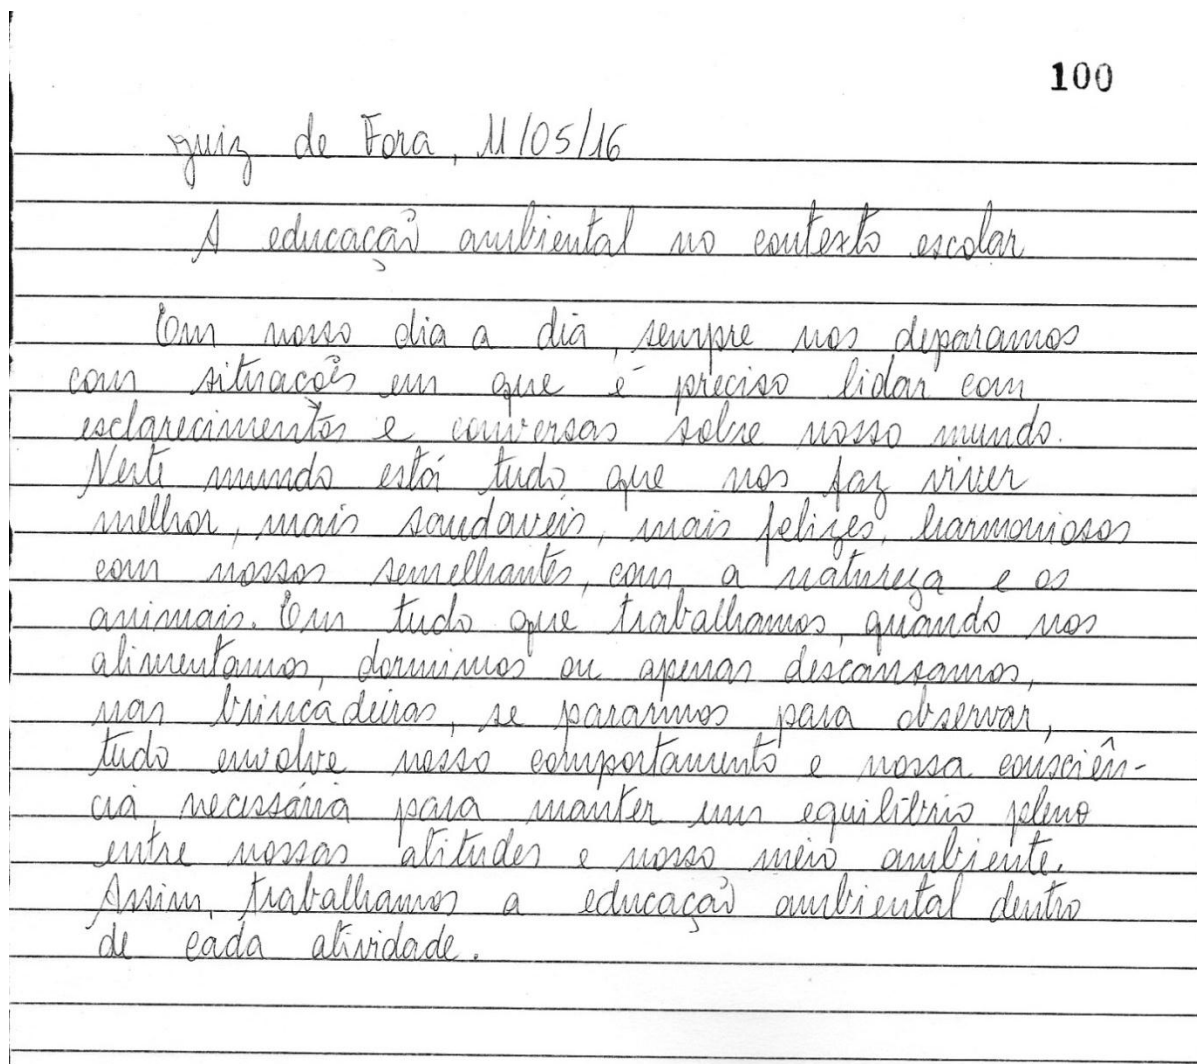 100
Juiz de Fora, 11/05/16
A educação ambiental no contexto escolar
Em nosso dia a dia, sempre nos deparamos
com situações em que é preciso lidar com
esclarecimentos e conversas sobre nosso mundo.
Neste mundo está tudo que nos faz viver
melhor, mais saudáveis, mais felizes, harmoniosos
com nossos semelhantes, com a natureza e os
animais. Em tudo que trabalhamos, quando nos
alimentamos, dormimos ou apenas descansamos,
nas brincadeiras, se pararmos para observar,
tudo envolve nosso comportamento e nossa consciên-
cia necessária para manter um equilíbrio pleno
entre nossas atitudes e nosso meio ambiente.
Assim, trabalhamos a educação ambiental dentro
de cada atividade.